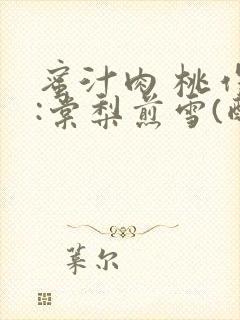 蜜汁肉 桃 作
:棠梨煎雪(
莱尔